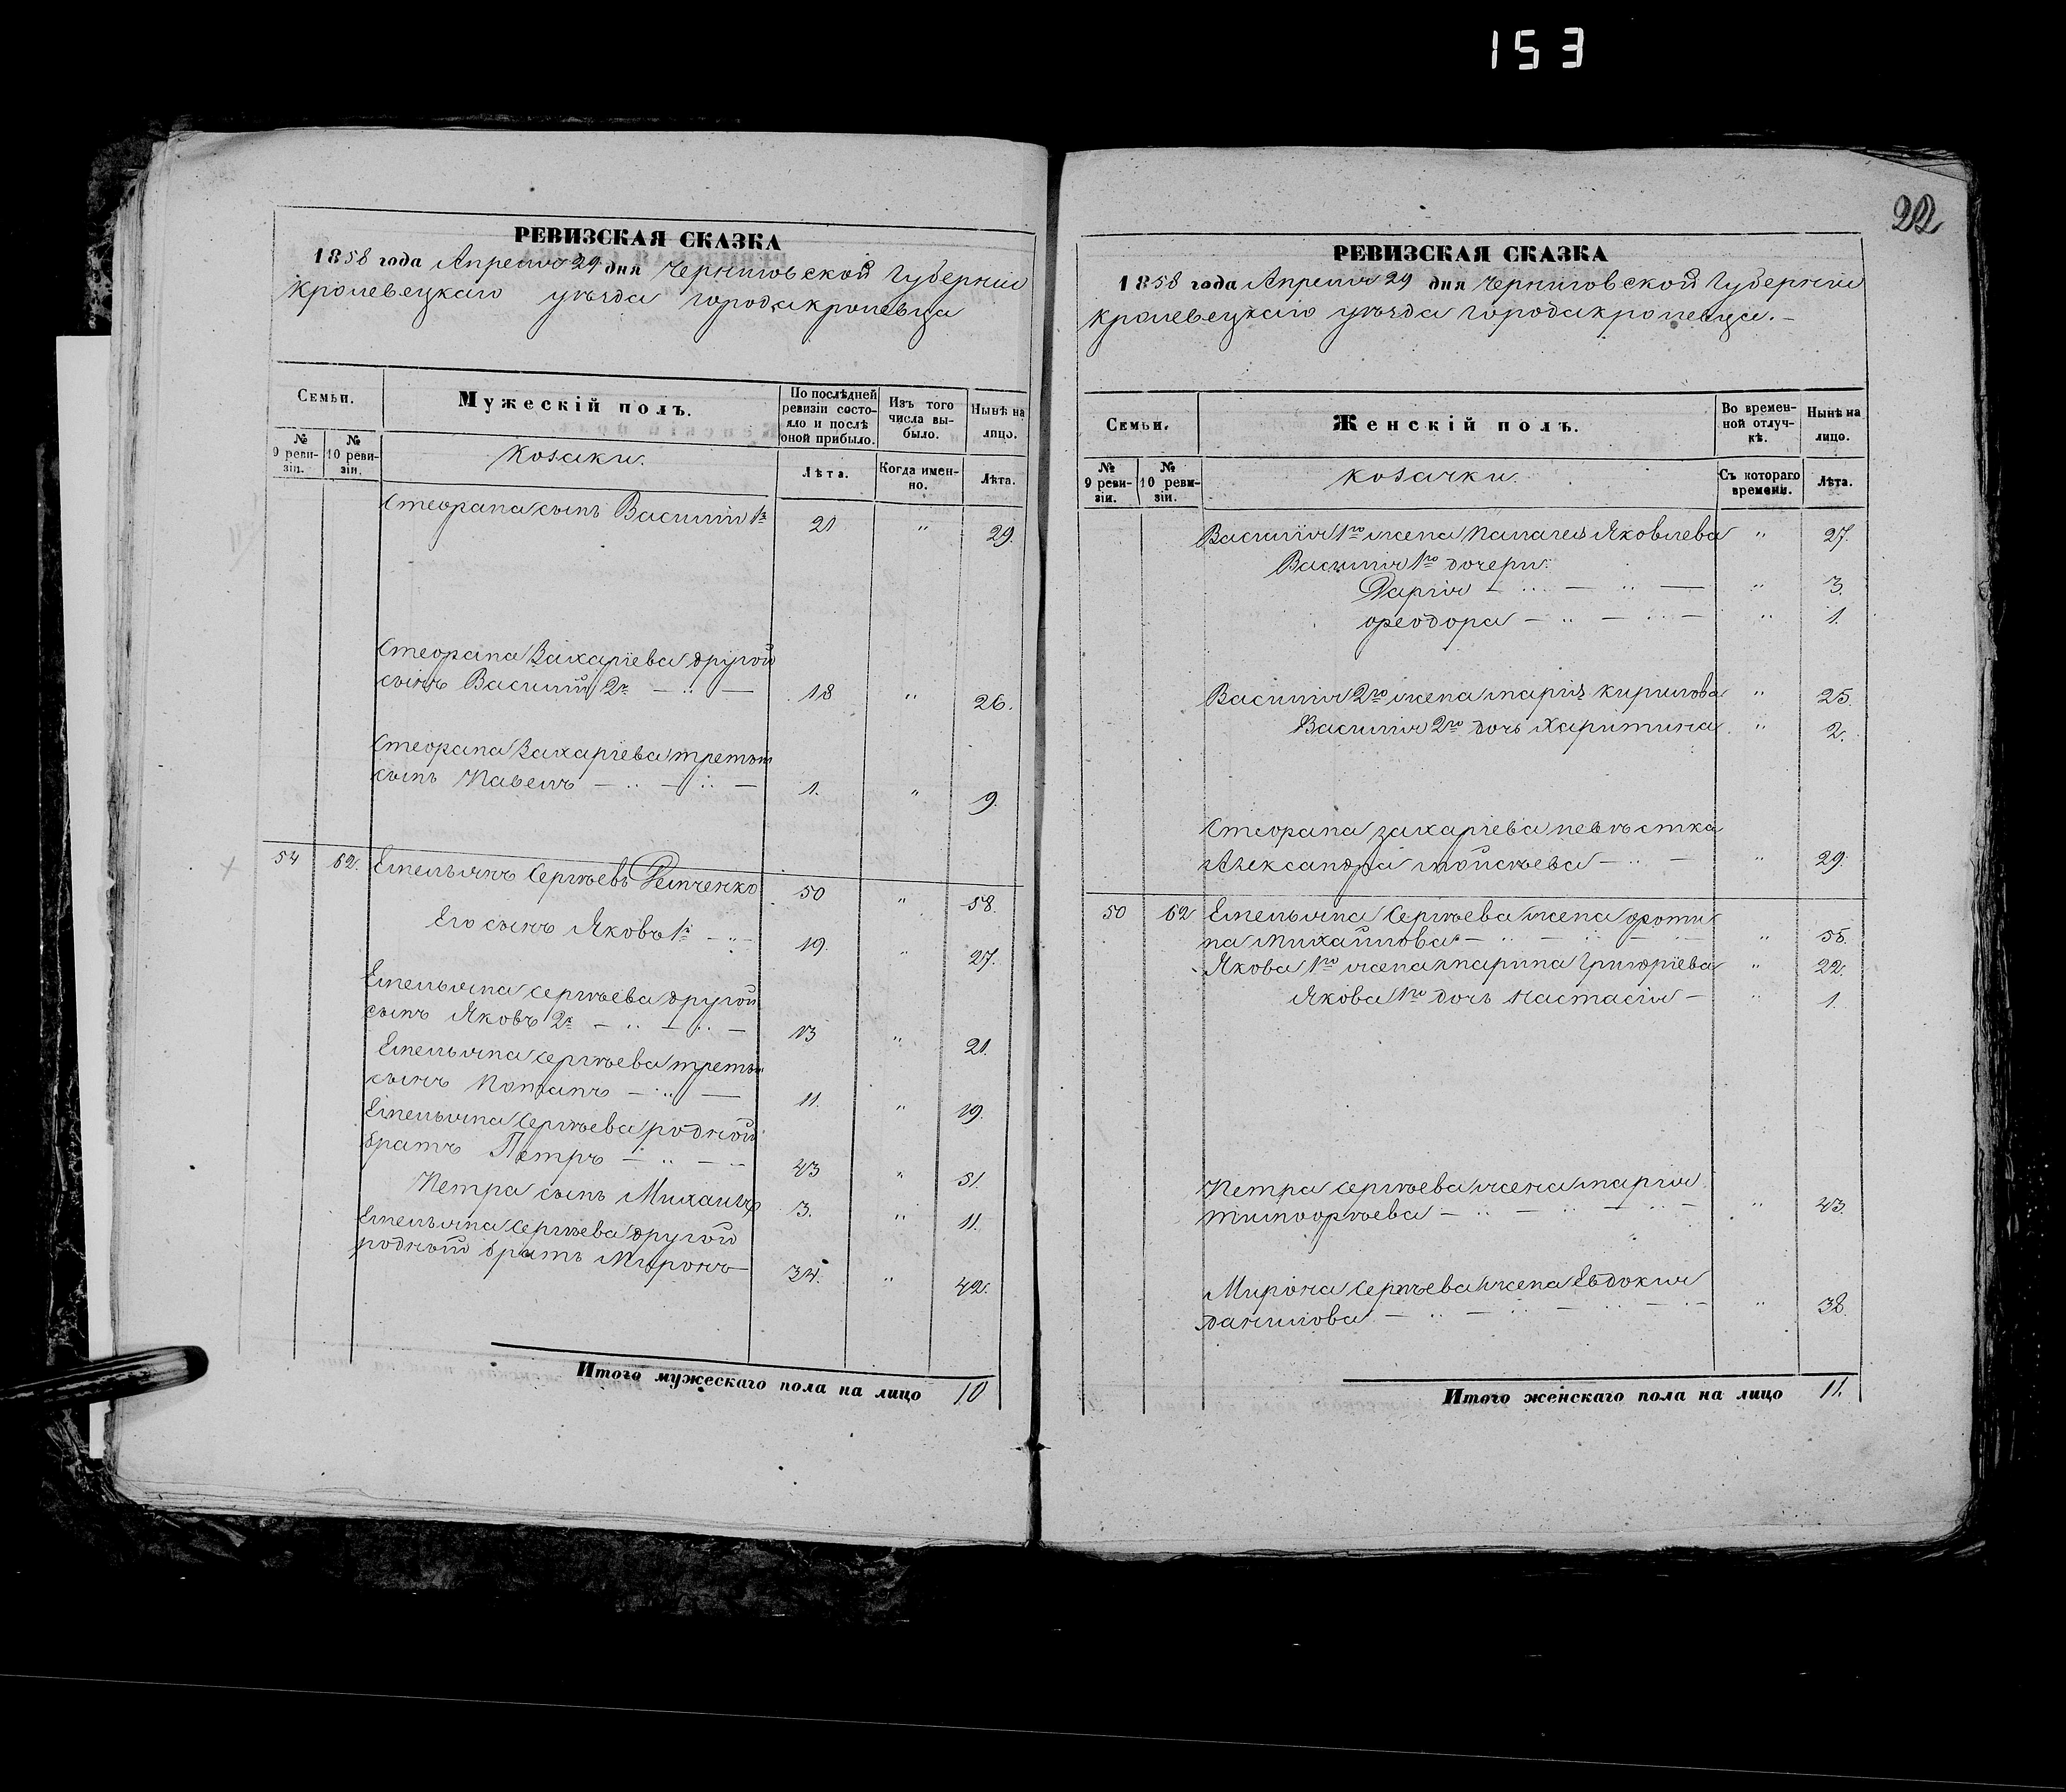 153
22
РЕВИЗСКАЯ СКАЗКА
1858 года Апреля 29 дня Черниговской Губерніи
Кролевецкаго уѣзда города Кролевца
Семьи.
Мужескій полъ.
По послѣдней ревизіи состояло и послѣ оной прибыло.
Изъ того числа выбыло.
Нынѣ на лицо.
№ 9 ревизіи.
№ 10 ревизіи.
Козаки.
Лѣта.
Когда именно.
Лѣта.
Стефана сынъ Василій 1й 21 " 29.
Стефана Захаріева другой
сынъ Василій 2й — " — 18 " 26.
Стефана Захаріева третій
сынъ Павелъ — " — " — 1. " 9.
54 62. Емельянъ Сергѣевъ Демченко 50 " 58.
Его сынъ Яковъ 1й — " — 19. " 27.
Емельяна Сергѣева другой
сынъ Яковъ 2й — " — " — 13 " 21.
Емельяна Сергѣева третій
сынъ Потапъ — " — 11. " 19.
Емельяна Сергѣева родной
братъ Петръ — " — 43 " 51.
Петра сынъ Михаилъ 3. " 11.
Емельяна Сергѣева другой
родной братъ Миронъ 34. " 42.
Итого мужескаго пола на лицо 10
РЕВИЗСКАЯ СКАЗКА
1858 года Апреля 29 дня Черниговской Губерніи
Кролевецкаго уѣзда города Кролевца. —
Семьи.
Женскій полъ.
Во временной отлучкѣ.
Нынѣ на лицо.
№ 9 ревизіи.
№ 10 ревизіи.
Козачки.
Съ котораго времени.
Лѣта.
Василія 1го жена Яковлева " 27.
Василія 1го дочери:
Дарія — " — " — " 3.
Феодора — " — " — " 1.
Василія 2го жена Марія Кирилова " 25.
Василія 2го дочь Харитина " 2.
Стефана Захаріева невѣстка
Александра Мойсѣева — " — " 29.
50 62 Емельяна Сергѣева жена Фоти
на Михайлова — " — " — " 55.
Якова 1го жена Марина Григоріева " 22.
Якова 1го дочь Настасія — " 1.
Петра Сергѣева жена Марія
Тимофѣева — " — " — " — " 43.
Мирона Сергѣева жена Евдокія
Данилова — " — " — " — " 38.
Итого женскаго пола на лицо 11.